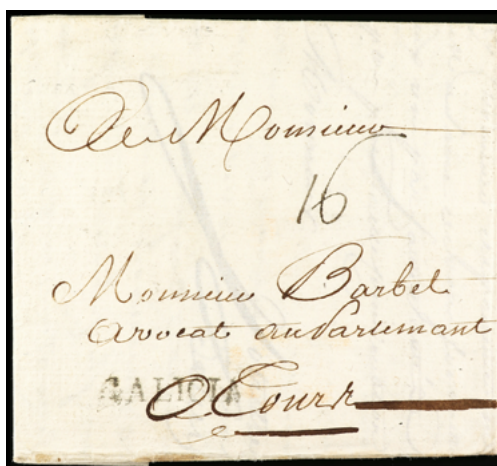 A Monsieur
16
Monsieur Barbet
avocat au Parlemant
GALICIA
A Tours